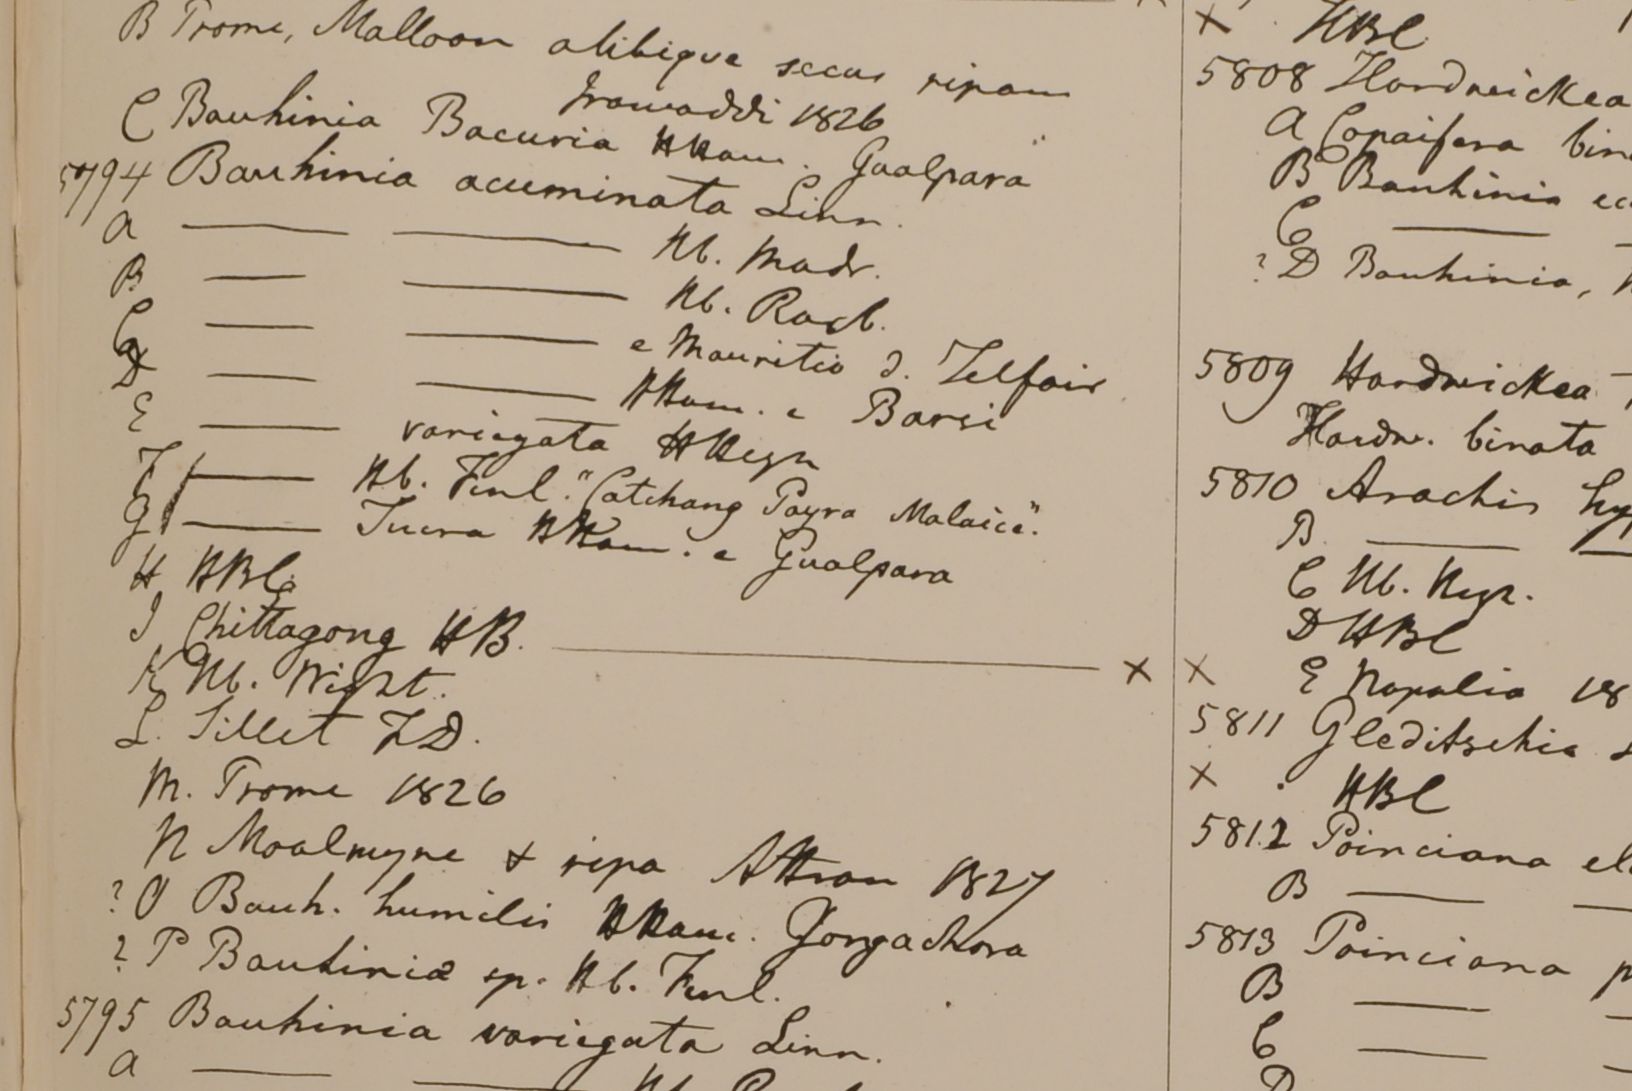 B Prome, Malloon alibique secus ripam
Irawaddi 1826
C Bauhinia Bacuria HHam. Gualpara
5794 Bauhinia acuminata Linn.
A — — Hb. Madr.
B — — Hb. Roxb.
C — — e Mauritio d. Telfair
D — — HHam. e Barsi
E — variegata HHeyn
F — Hb. Finl. "Catchang Payra Malaice".
G — Tucra HHam. e Gualpara
H HBC
I Chittagong HB. — x
K Hb. Wight.
L. Sillet FD.
M. Prome 1826
N Moalmyne & ripa Attran 1827
? O Bauh. humilis HHam. Gongachora
? P Bauhiniæ sp. Hb. Finl.
5795 Bauhinia variegata Linn.
A — — Hb.
x HBC
5808 Hardwickea
A Copaifera bin
B Bauhinia
C —
? D Bauhinia,
5809 Hardwickea
Hardw. binata
5810 Arachis hyp
B — —
C Hb. Heyn.
D HBC
x E Napalia 18
5811 Gleditschia
x HBC
5812 Poinciana el
B — —
5813 Poinciana p
B — —
C — —
D